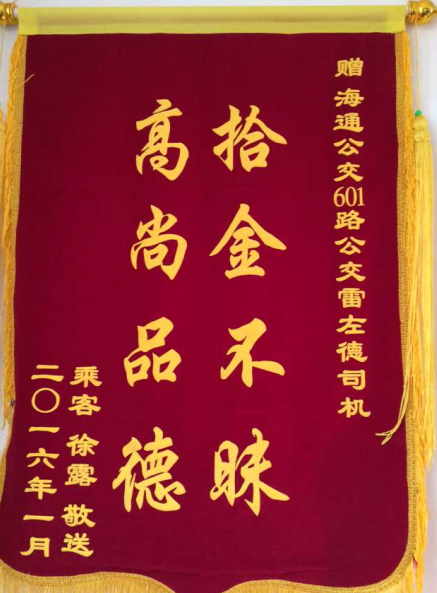 赠海通公交601路公交雷左德司机
拾金不昧
高尚品德
乘客 徐露 敬送
二〇一六年一月